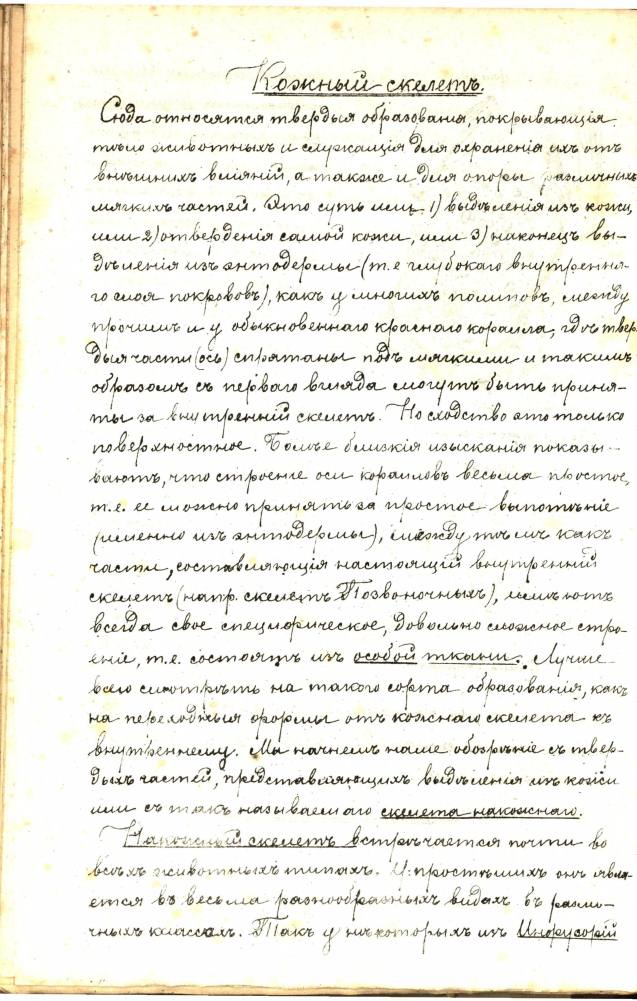 Кожный скелетъ.
Сюда относятся твердыя образованія, покрывающія
тѣло животныхъ и служащія для охраненія ихъ отъ
внѣшнихъ вліяній, а также и для опоры различныхъ
мягкихъ частей. Это суть или 1) выдѣленія изъ кожи,
или 2) отвердѣнія самой кожи, или 3) наконецъ вы-
дѣленія изъ энтодермы (т.е глубокаго внутрення-
го слоя покрововъ), какъ у многихъ полиповъ, между
прочимъ и у обыкновеннаго краснаго коралла, гдѣ твер
дыя части (ось) спрятаны подъ мягкими и такимъ
образомъ съ перваго взгляда могутъ быть приня-
ты за внутренній скелетъ. Но сходство это только
поверхностное. Болѣе близкія изысканія показы-
ваютъ, что строеніе оси коралловъ весьма простое,
т.е. ее можно принять за простое выпотѣніе
(именно изъ энтодермы), между тѣмъ какъ
части, составляющія настоящій внутренній
скелетъ (напр. скелетъ Позвоночныхъ), имѣютъ
всегда свое специфическое, довольно сложное стро-
еніе, т.е. состоятъ изъ особой ткани. Лучше
всего смотрѣть на такого сорта образованія, какъ
на переходныя формы отъ кожнаго скелета къ
внутреннему. Мы начнемъ наше обозрѣніе съ твер-
дыхъ частей, представляющихъ выдѣленія изъ кожи
или съ такъ называемаго скелета накожнаго.
Накожный скелетъ встрѣчается почти во
всѣхъ животныхъ типахъ. У простѣйшихъ онъ явля-
ется въ весьма разнообразныхъ видахъ въ разли-
чныхъ классахъ. Такъ у нѣкоторыхъ изъ Инфузорій